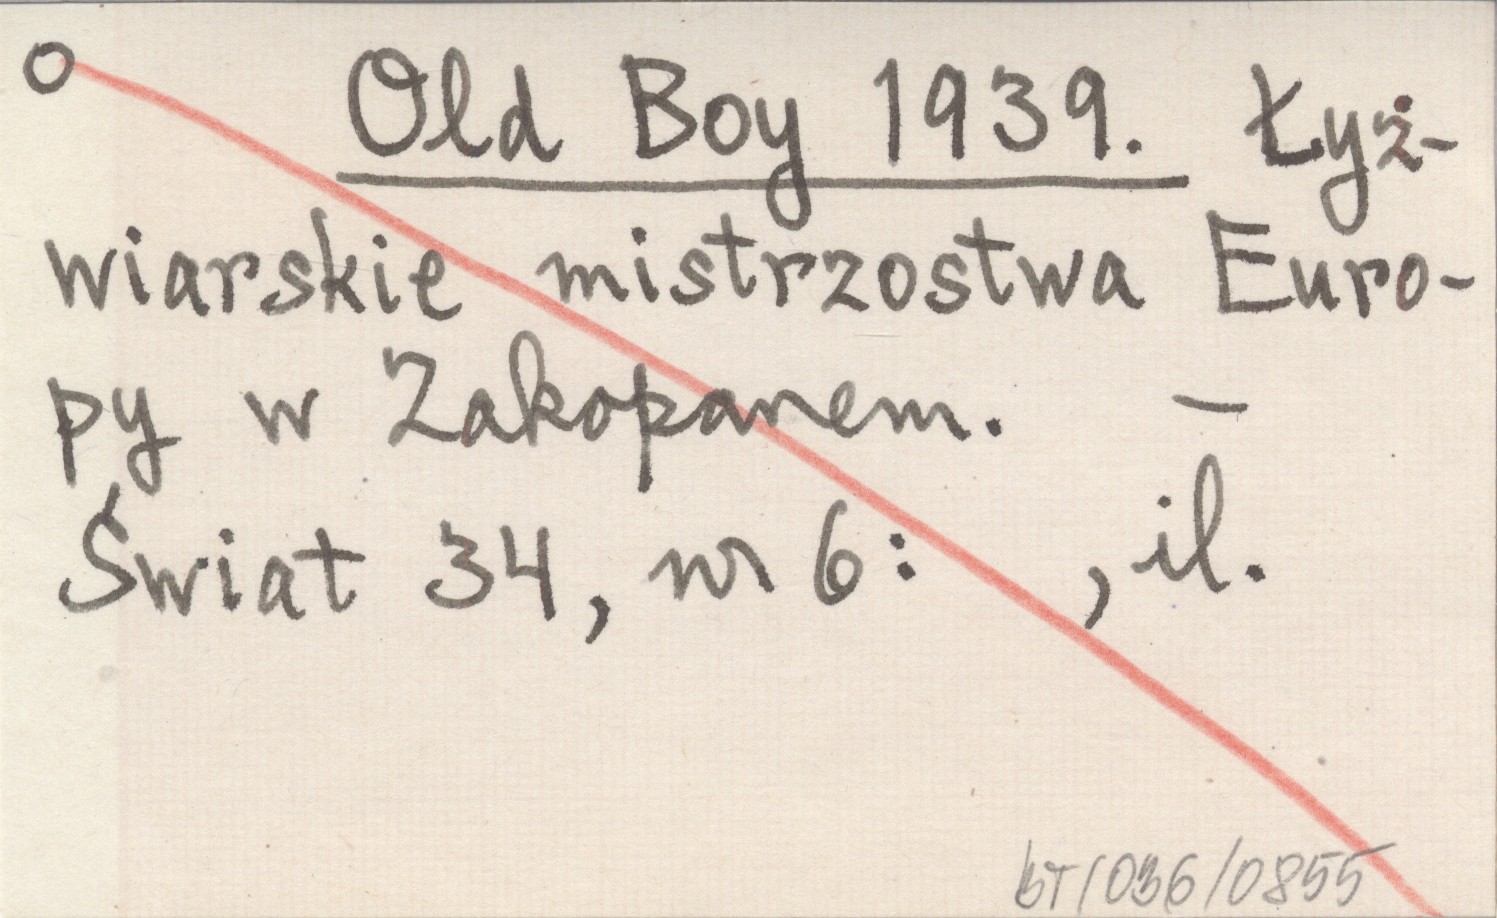 o Old Boy 1939. Łyż-
wiarskie mistrzostwa Euro-
py w Zakopanem. –
Świat 34, nr 6: , il.
BT/036/0855